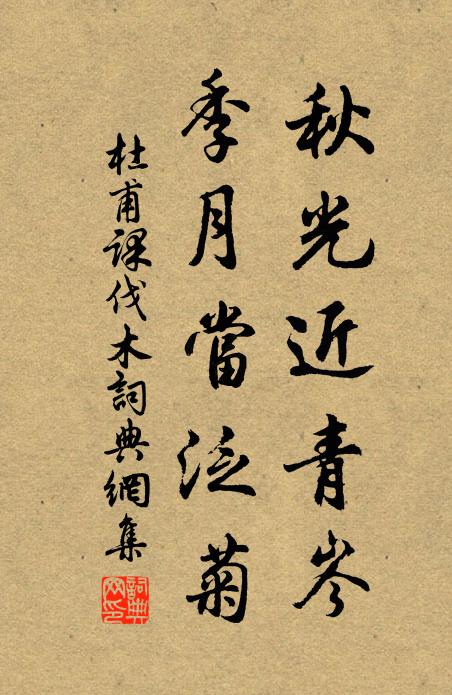 秋光近青岑
季月當泛菊
杜甫課伐木詞典網集
詞典網印